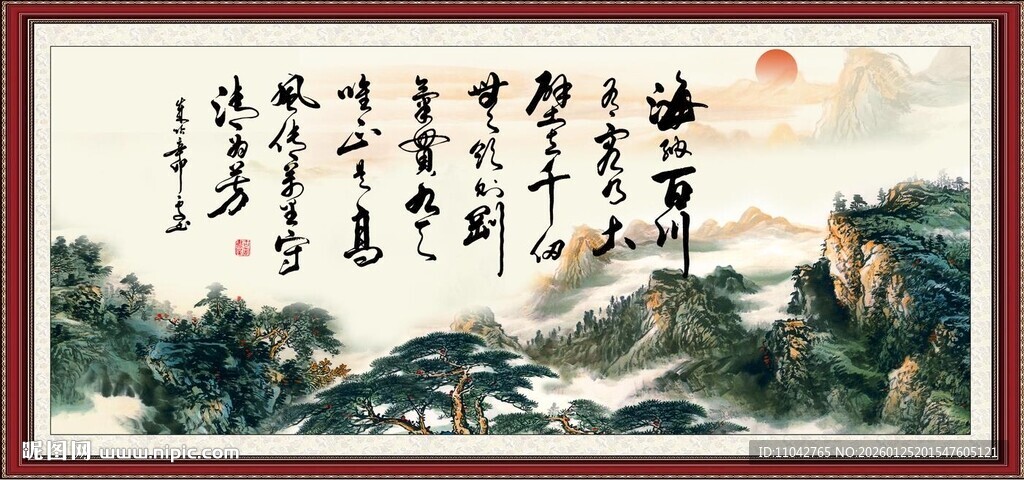 海纳百川
有容乃大
壁立千仞
無欲则剛
氣貫九天
唯正是高
風传萬里守
清為芳
昵图网 www.nipic.com
ID:11042765 NO:20260125201547605121